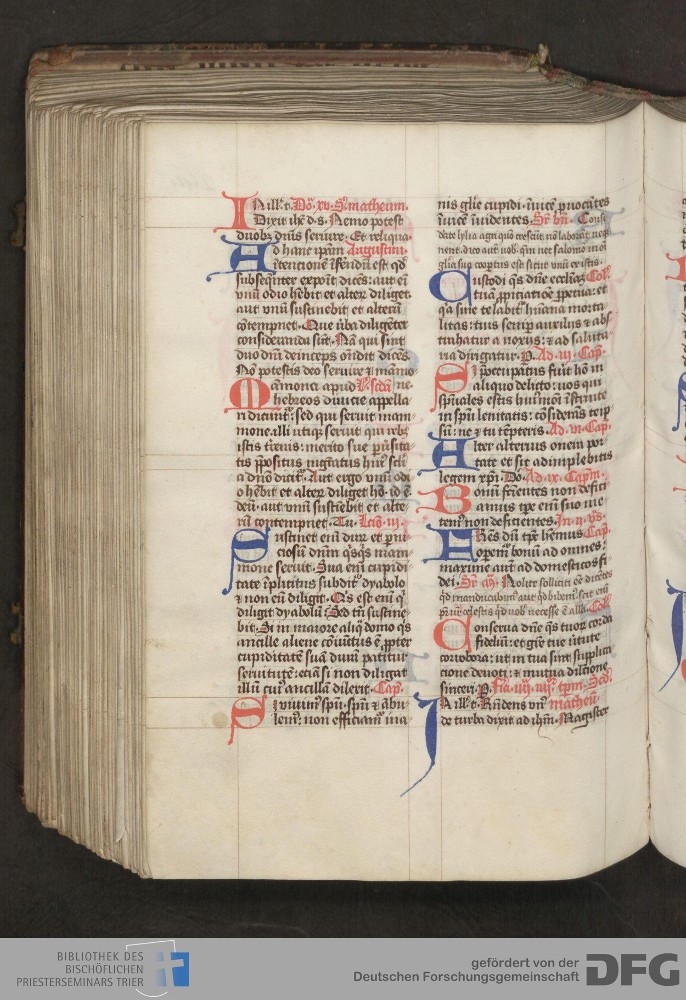 In ill. t. Do. xv. S. matheum.
Dixit ihc d. s. Nemo potest
duobz dnis seruire. Et reliqua.
Ad hanc ipam Augustini.
intencione ifendu est qd
subsequiter exponit dices: aut ei
vnu odio hebit et alter diliget.
aut vnu sustinebit et alteru
cotempnet. Que uba diligeter
consideranda sut. Na qui sint
duo dni deinceps ondit dices.
No potestis deo seruire & mamo
Mamona apud ne
hebreos diuicie appella
ri dicunt: sed qui seruit mam
mone. illi utiqz seruit qui rebz
istis merito sue
tis ppositus
a dno dicit. Aut ergo vnu odi
o hebit et alter diliget ho. id e.
deu. aut vnu sustiebit et alte
ru contempnet. Tu. Lcio. iij.
Sustinet eni duru et pni
ciosu dnm qsqs mam
mone seruit. Sua eni cupidi
tate iplicitus subdit dyabolo
& non eu diligit. Qs est eni q
diligit dyabolu? Sed tn sustine
bit. Si in maiore aliq domo qs
ancille aliene coiuctus e. ppter
cupiditate sua duram patitur
seruitute: ecia si non diligat
illu cui ancilla dilexit. Cap.
Si viuim spu. spu & abu
lem: non efficiam ina
nis glie cupidi. iuice puocates
iuice inuidentes. Sr bn. Consi
derate lylia agri quo crescut no laborat neqz
nent. dico aut uob. qm nec salomo in oi
glia sua cooptus est sicut vnu ex istis.
Custodi qs dne ecclia Coll.
tua ppiciacioe ppetua: et
qa sine te labit huana morta
litas: tuis semp auxiliis & abs
trahatur a noxiis: & ad saluta
ria dirigatur. P. Ad. iij. Cap.
Si pocupatus fuit ho in
aliquo delicto: uos qui
spuales estis huimoi istruite
in spu lenitatis: cosiderans teip
su: ne & tu tepteris. Ad. vi. Cap.
Alter alterius onera por
tate et sic adimplebitis
legem xpi. Do. Ad. ix. Capm.
Bonu facientes non defici
amus tpe eni suo me
tem non deficientes. In. ij. vs.
Ergo du tps hemus Cap.
operem bonu ad omnes:
maxime aut ad domesticos fi
dei. Sr. Nolite solliciti ee dicetes
qd manducabim aut qd bibem. scit eni
pr vr celestis qd uob necesse e. alla. Coll.
Conserua dne qs tuor corda
fideliu: et gre tue uirtute
corrobora: ut in tua sint supplica
cione deuoti: & mutua dilcione
sinceri. P. Fia. iiij. iiij. tpm. Scd.
In ill. t. Rndens vn matheu.
de turba dixit ad ihm. Magister
BIBLIOTHEK DES
BISCHÖFLICHEN
PRIESTERSEMINARS TRIER
gefördert von der
Deutschen Forschungsgemeinschaft
DFG